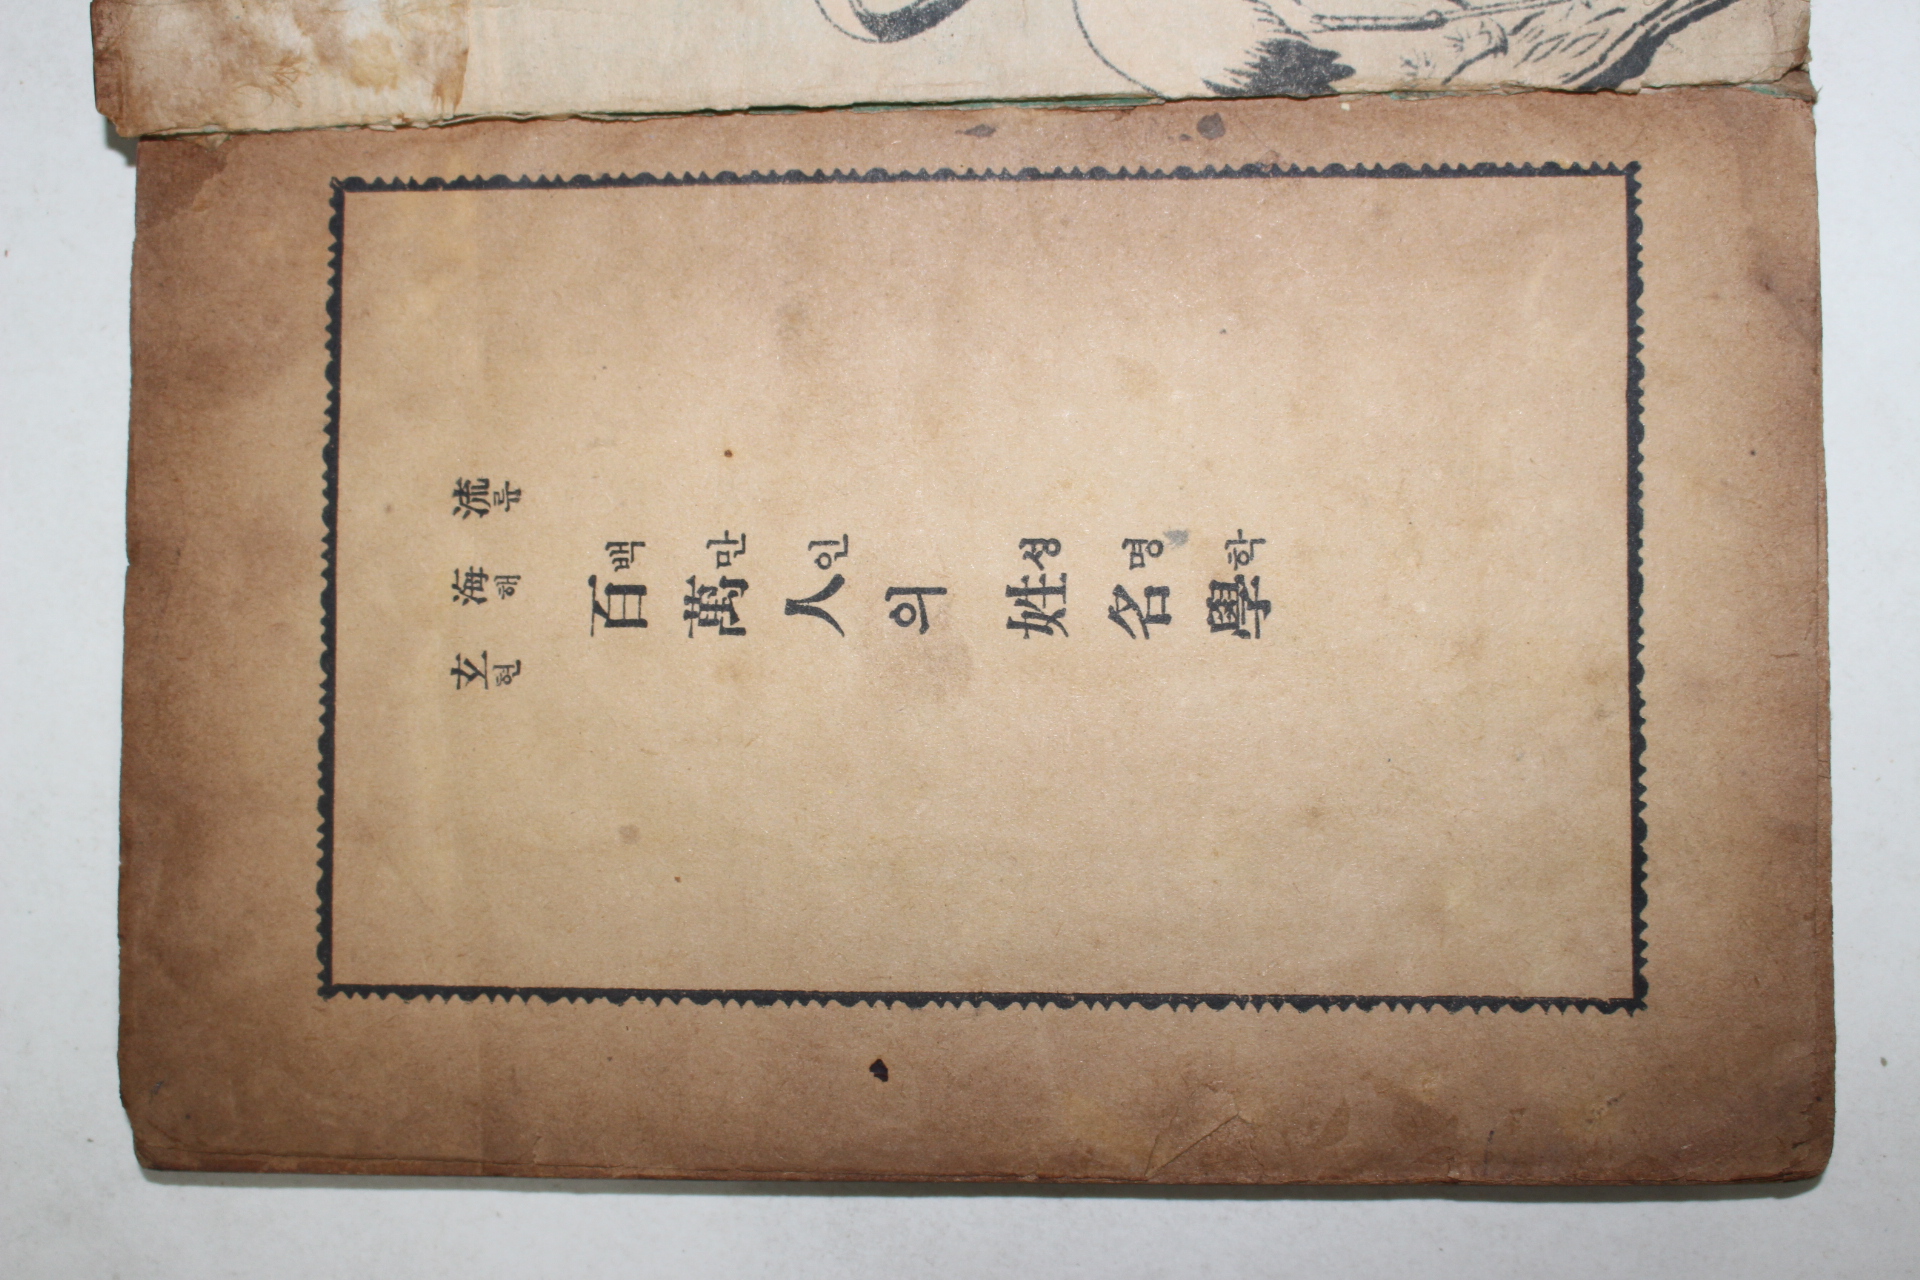 玄 海 流
현 해 류
百萬人의 姓名學
백만인 성명학